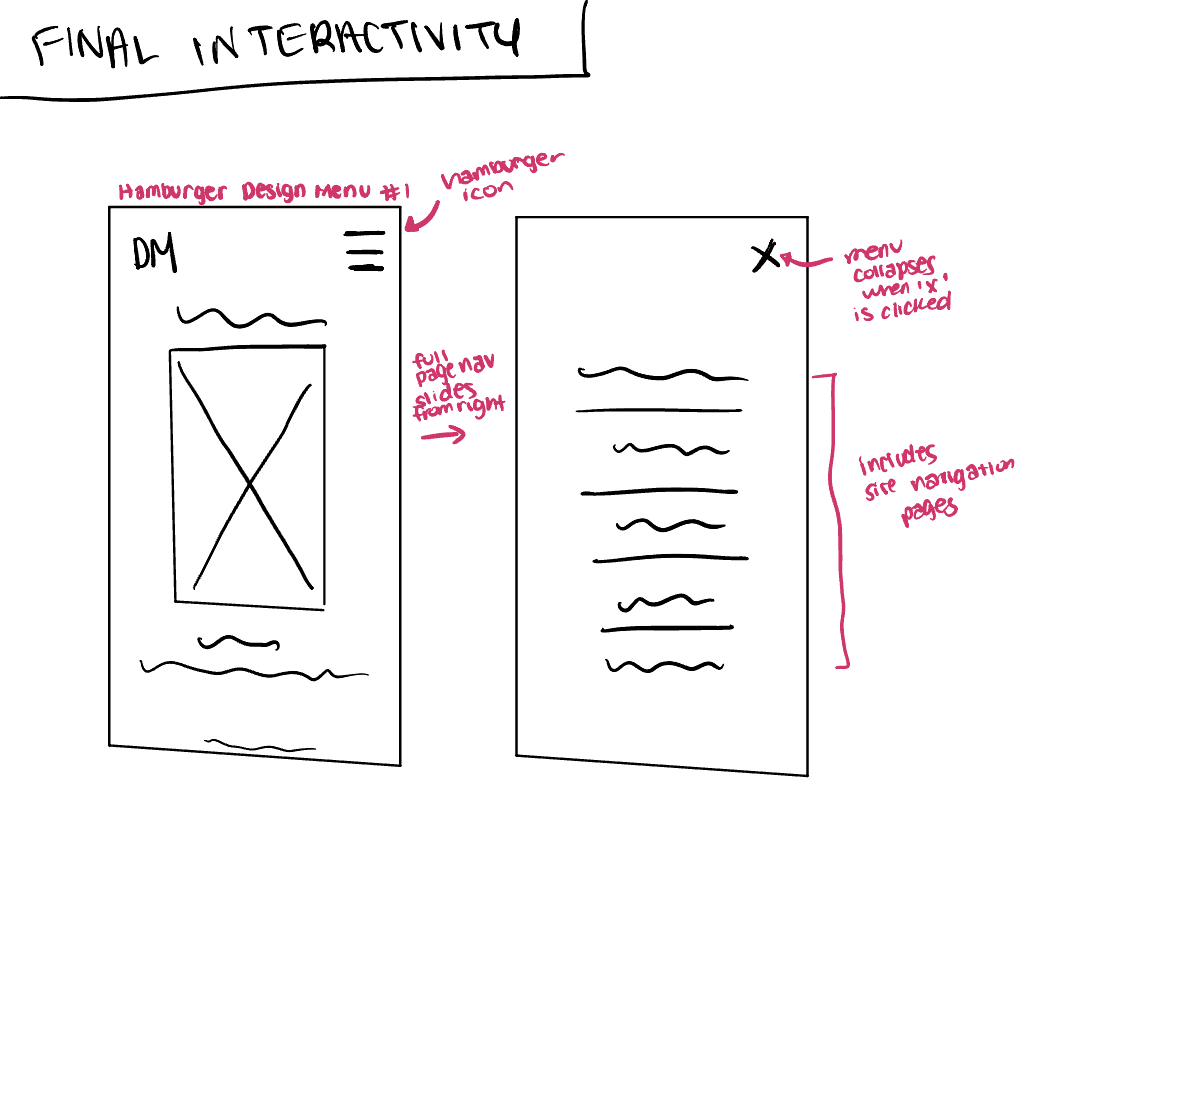 FINAL INTERACTIVITY
Hamburger Design Menu #1
hamburger
icon
DM
full
page nav
slides
from right
menu
collapses
when 'x'
is clicked
includes
site navigation
pages